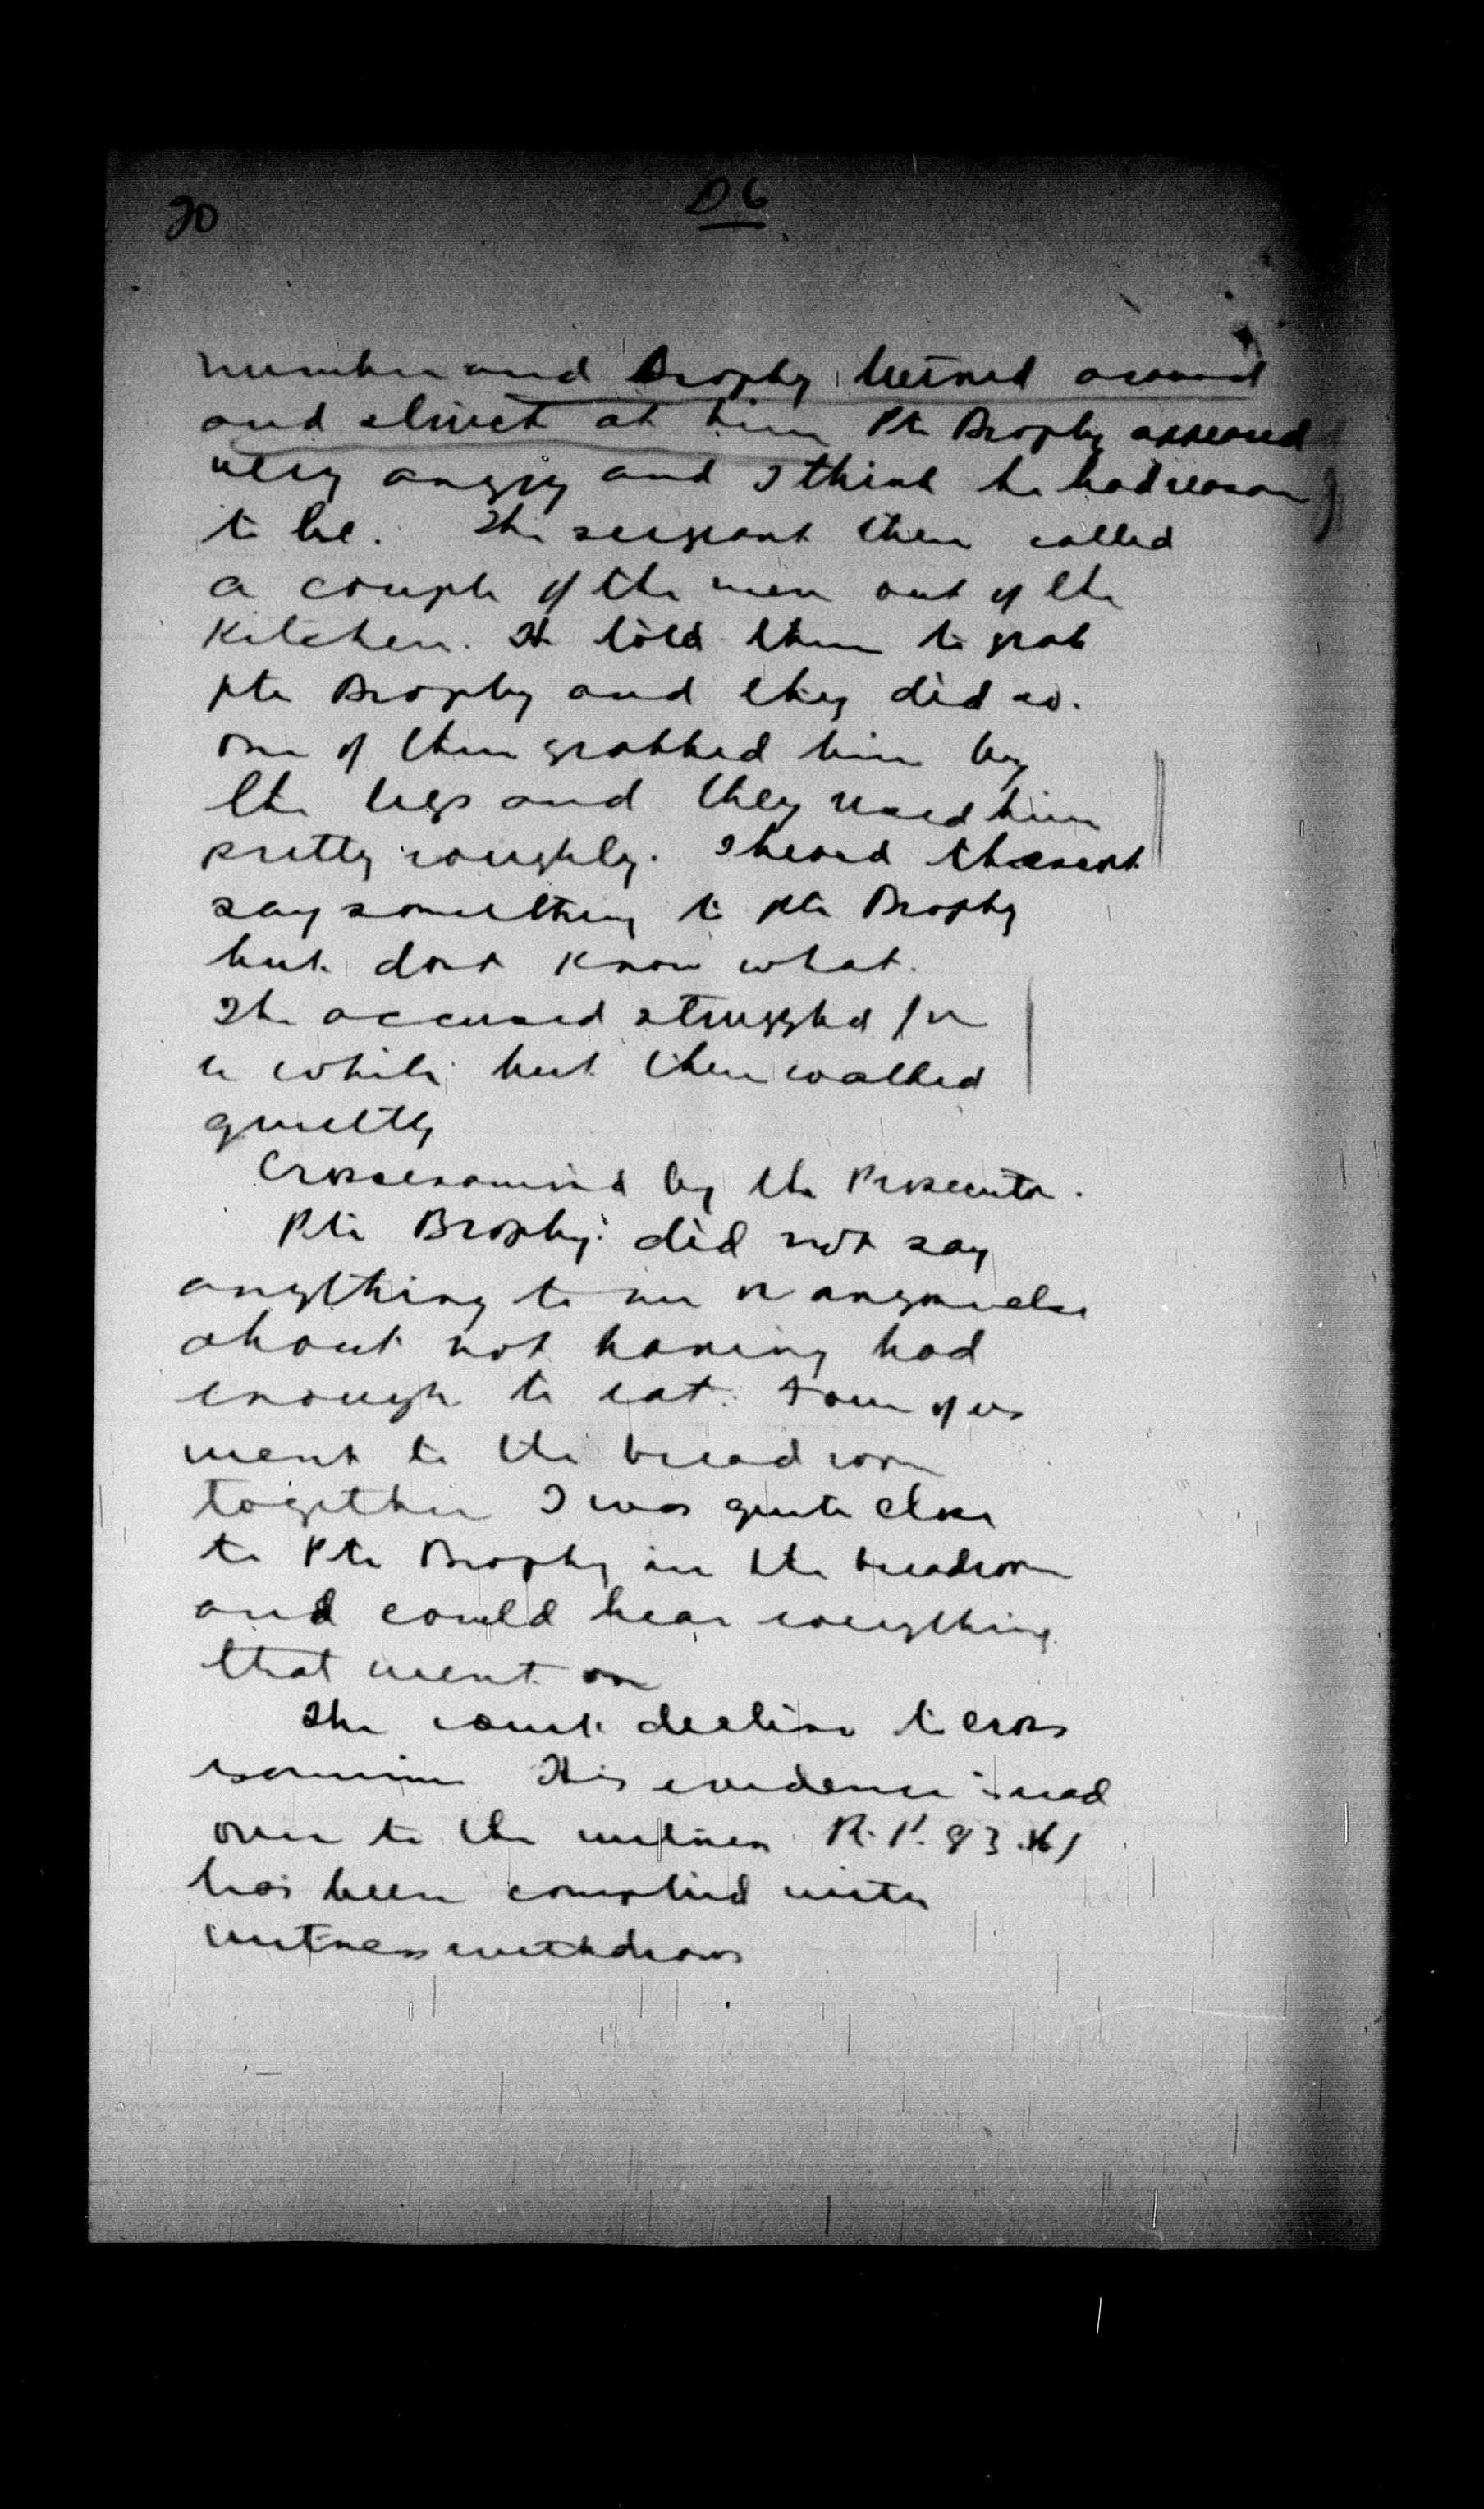 20
D6
number and Brophy turned around
and struck at him Pte Brophy appeared
very angry and I think he had reason
to be. The sergeant then called
a couple of the men out of the
Kitchen. He told them to grab
pte Brophy and they did so.
one of them grabbed him by
the legs and they used him
pretty roughly. I heard the sergt
say something to pte Brophy
but dont know what.
The accused struggled for
a while but then walked
quietly
Crossexamined by the Prosecutor.
Pte Brophy did not say
anything to me or anyone else
about not having had
enough to eat. Four of us
went to the bread room
together I was quite close
to Pte Brophy in the breadroom
and could hear everything
that went on
The court decline to cross
examine His evidence is read
over to the witness R.P. 83 (b)
has been complied with
witness withdraws